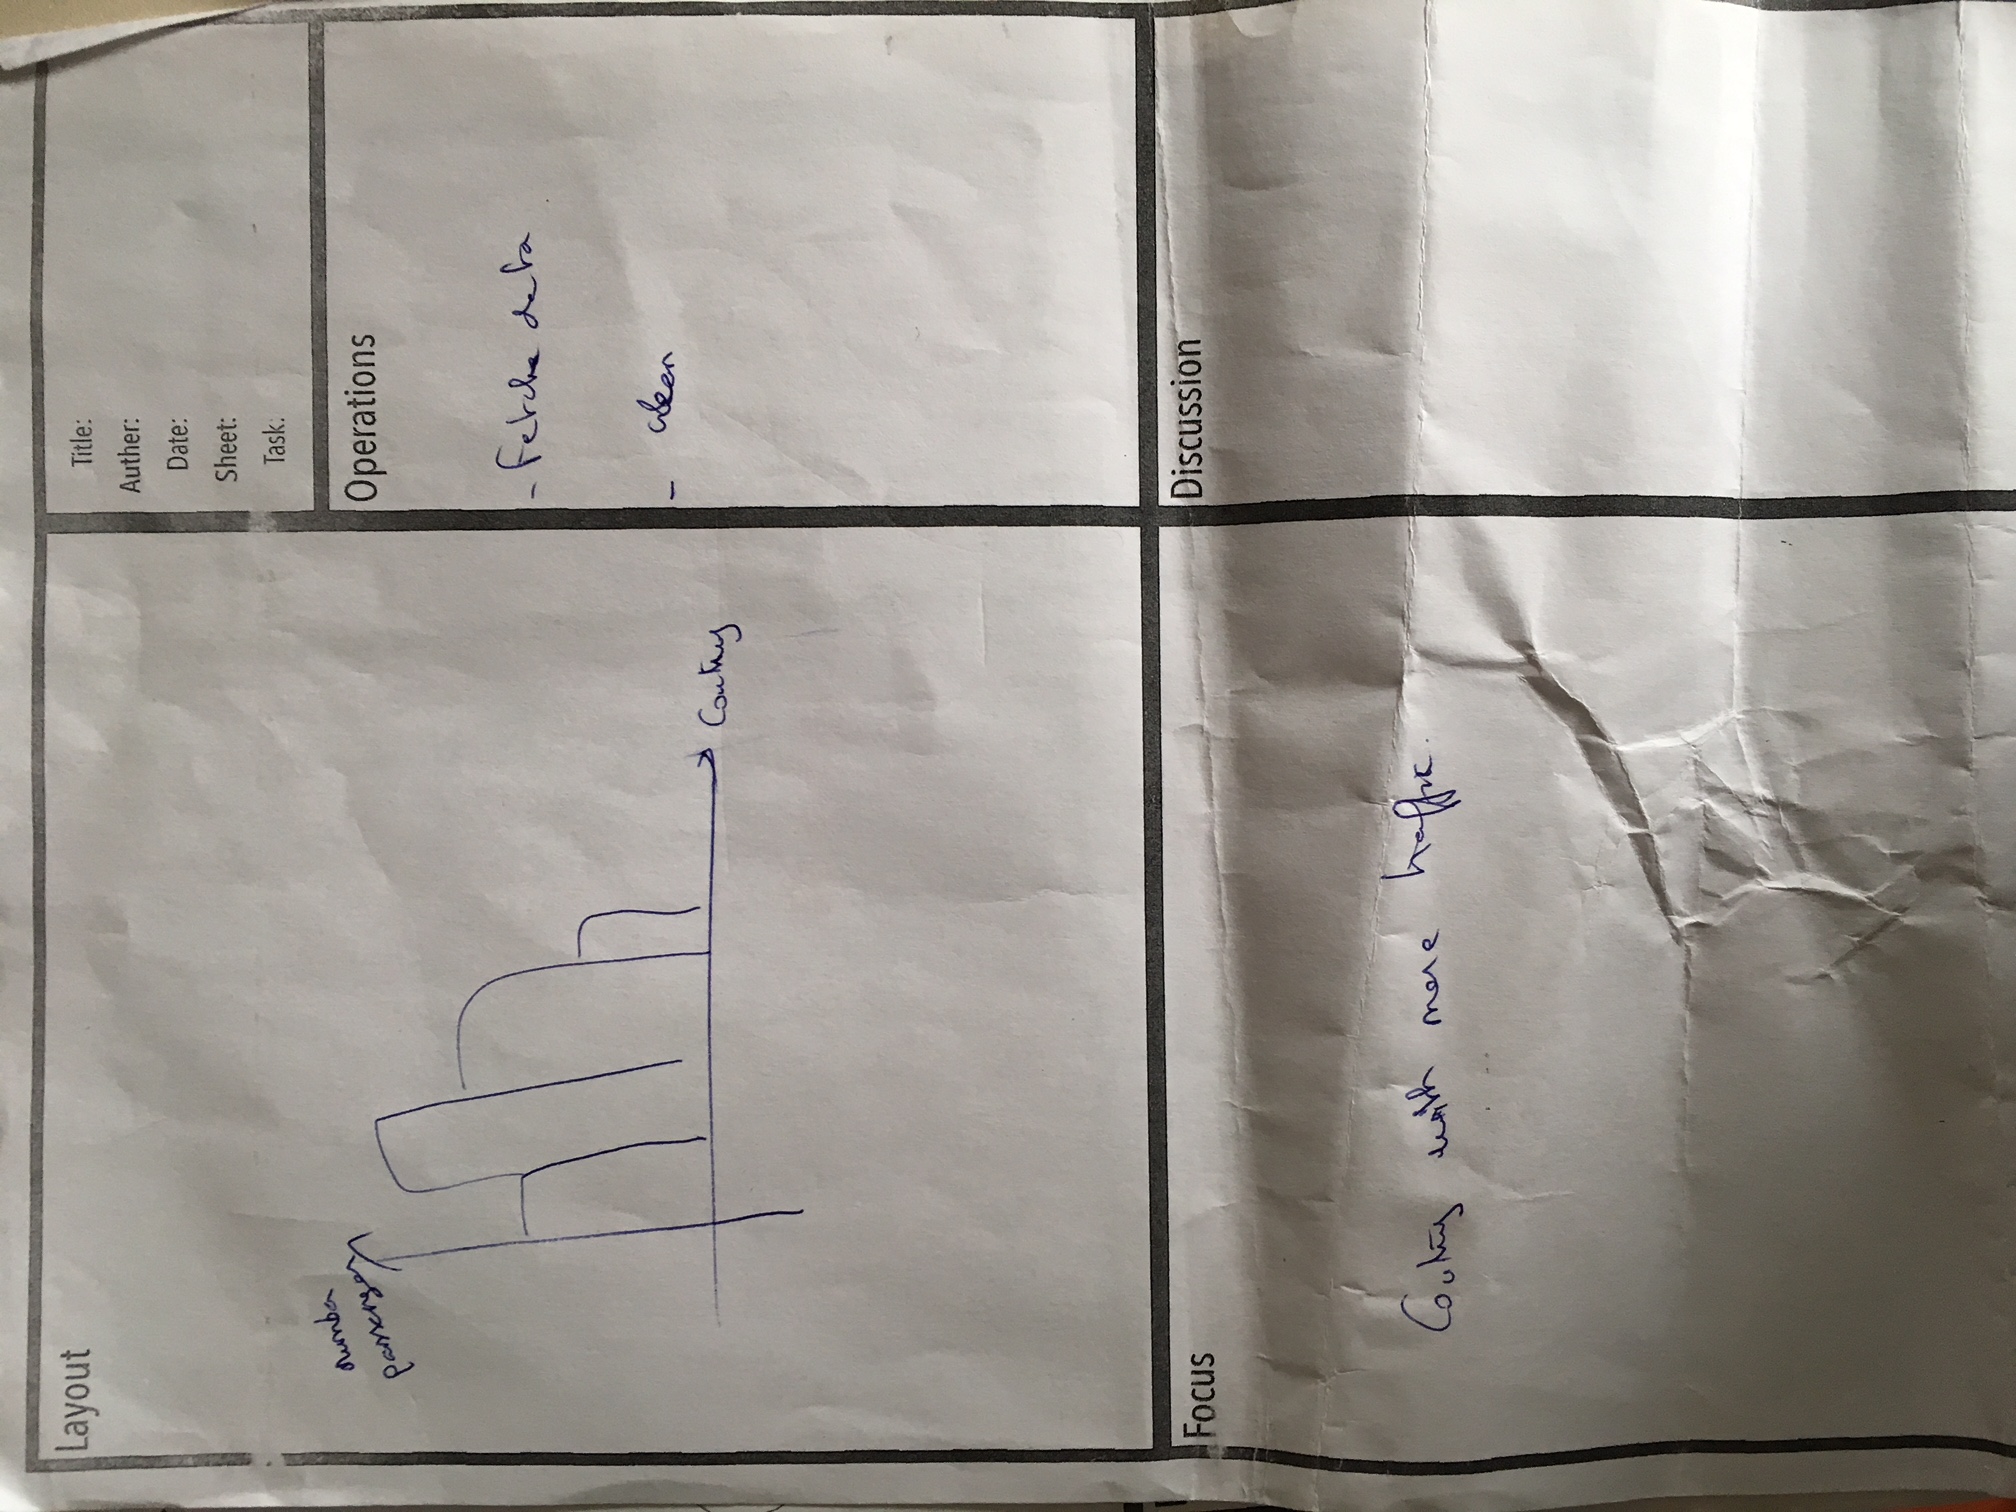 Layout
number
passenger
Country
Title:
Auther:
Date:
Sheet:
Task:
Operations
- Fetche data
- clean
Focus
Country with more traffic.
Discussion